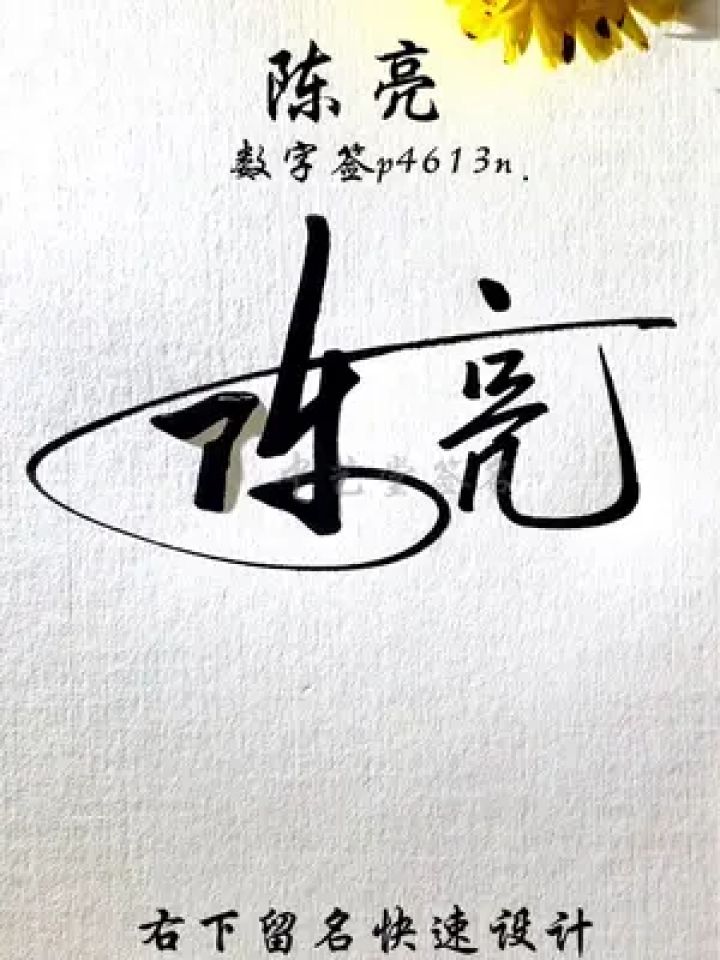 陈亮
数字签p4613n.
陈亮
右下留名快速设计